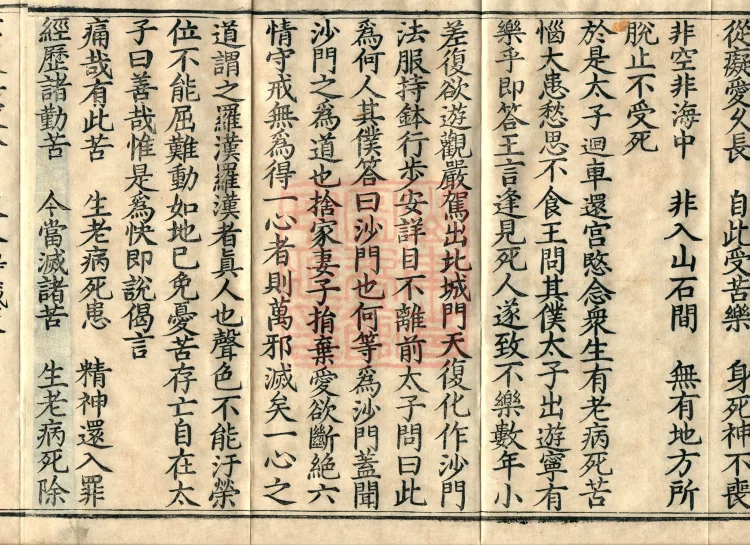 從癡愛久長 自此受苦樂 身死神不喪
非空非海中 非入山石間 無有地方所
脫止不受死
於是太子迴車還宮愍念衆生有老病死苦
惱大患愁思不食王問其僕太子出遊寧有
樂乎即答王言逢見死人遂致不樂數年小
差復欲遊觀嚴駕出北城門天復化作沙門
法服持鉢行步安詳目不離前太子問曰此
爲何人其僕答曰沙門也何等爲沙門蓋聞
沙門之爲道也捨家妻子捐棄愛欲斷絕六
情守戒無爲得一心者則萬邪滅矣一心之
道謂之羅漢羅漢者眞人也聲色不能汙榮
位不能屈難動如地已免憂苦存亡自在太
子曰善哉惟是爲快即說偈言
痛哉有此苦 生老病死患 精神還入罪
經歷諸勤苦 今當滅諸苦 生老病死除